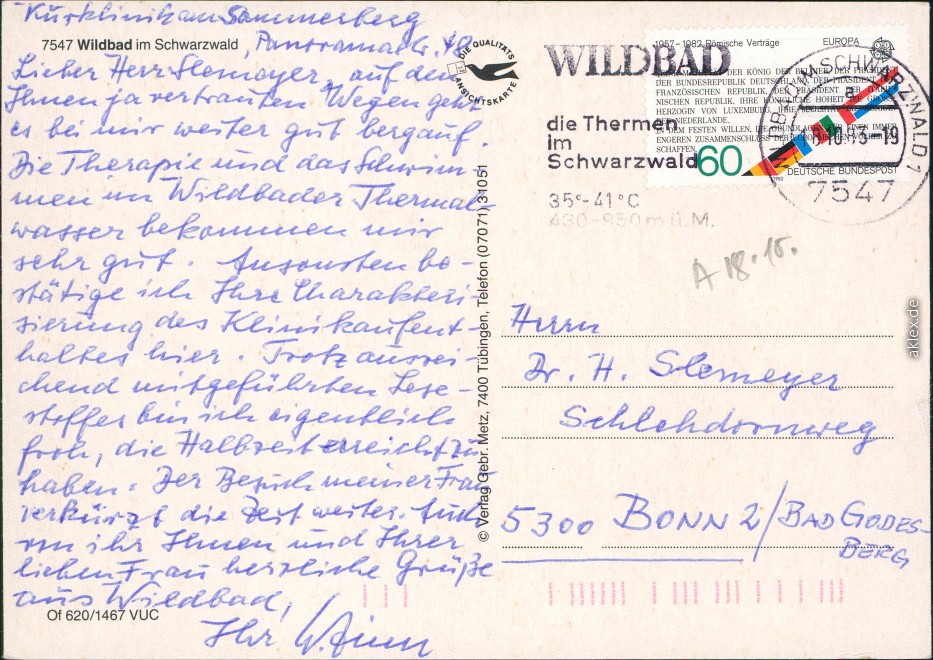 Kurklinik am Sommerberg
7547 Wildbad im Schwarzwald, Panoramastr. 48
Lieber Herr Slemeyer, auf den
Ihnen ja vertrauten Wegen geht
es bei mir weiter gut bergauf.
Die Therapie und das Schwim-
men im Wildbader Thermal-
wasser bekommen mir
sehr gut. Ansonsten be-
stätige ich Ihre Charakteri-
sierung des Klinikaufent-
haltes hier. Trotz ausrei-
chend mitgeführten Lese-
stoffes bin ich eigentlich
froh, die Halbzeit erreicht zu
haben. Der Besuch meiner Frau
verkürzt die Zeit weiter. Auch
von ihr Ihnen und Ihrer
lieben Frau herzliche Grüße
aus Wildbad,
Of 620/1467 VUC
Ihr
DIE QUALITÄTS
ANSICHTSKARTE
© Verlag Gebr. Metz, 7400 Tübingen, Telefon (07071) 31051
WILDBAD
die Thermen
im
Schwarzwald
35°-41°C
430-950 m ü.M.
1957-1982 Römische Verträge EUROPA
DER KÖNIG DER BELGIER, DER PRÄSIDENT
DER BUNDESREPUBLIK DEUTSCHLAND, DER PRÄSIDENT DER
FRANZÖSISCHEN REPUBLIK, DER PRÄSIDENT DER ITALIE-
NISCHEN REPUBLIK, IHRE KÖNIGLICHE HOHEIT DIE GROSS-
HERZOGIN VON LUXEMBURG, IHRE
NIEDERLANDE,
IN DEM FESTEN WILLEN, DIE GRUNDLAGEN FÜR EINEN IMMER
ENGEREN ZUSAMMENSCHLUSS DER EUROPÄISCHEN VÖLKER ZU
SCHAFFEN,
60
DEUTSCHE BUNDESPOST
WILDBAD IM SCHWARZWALD 1
.10.83-19
7547
A 18.10.
Herrn
Dr. H. Slemeyer
Schlehdornweg
5300 BONN 2/BAD GODES-
BERG
aklex.de